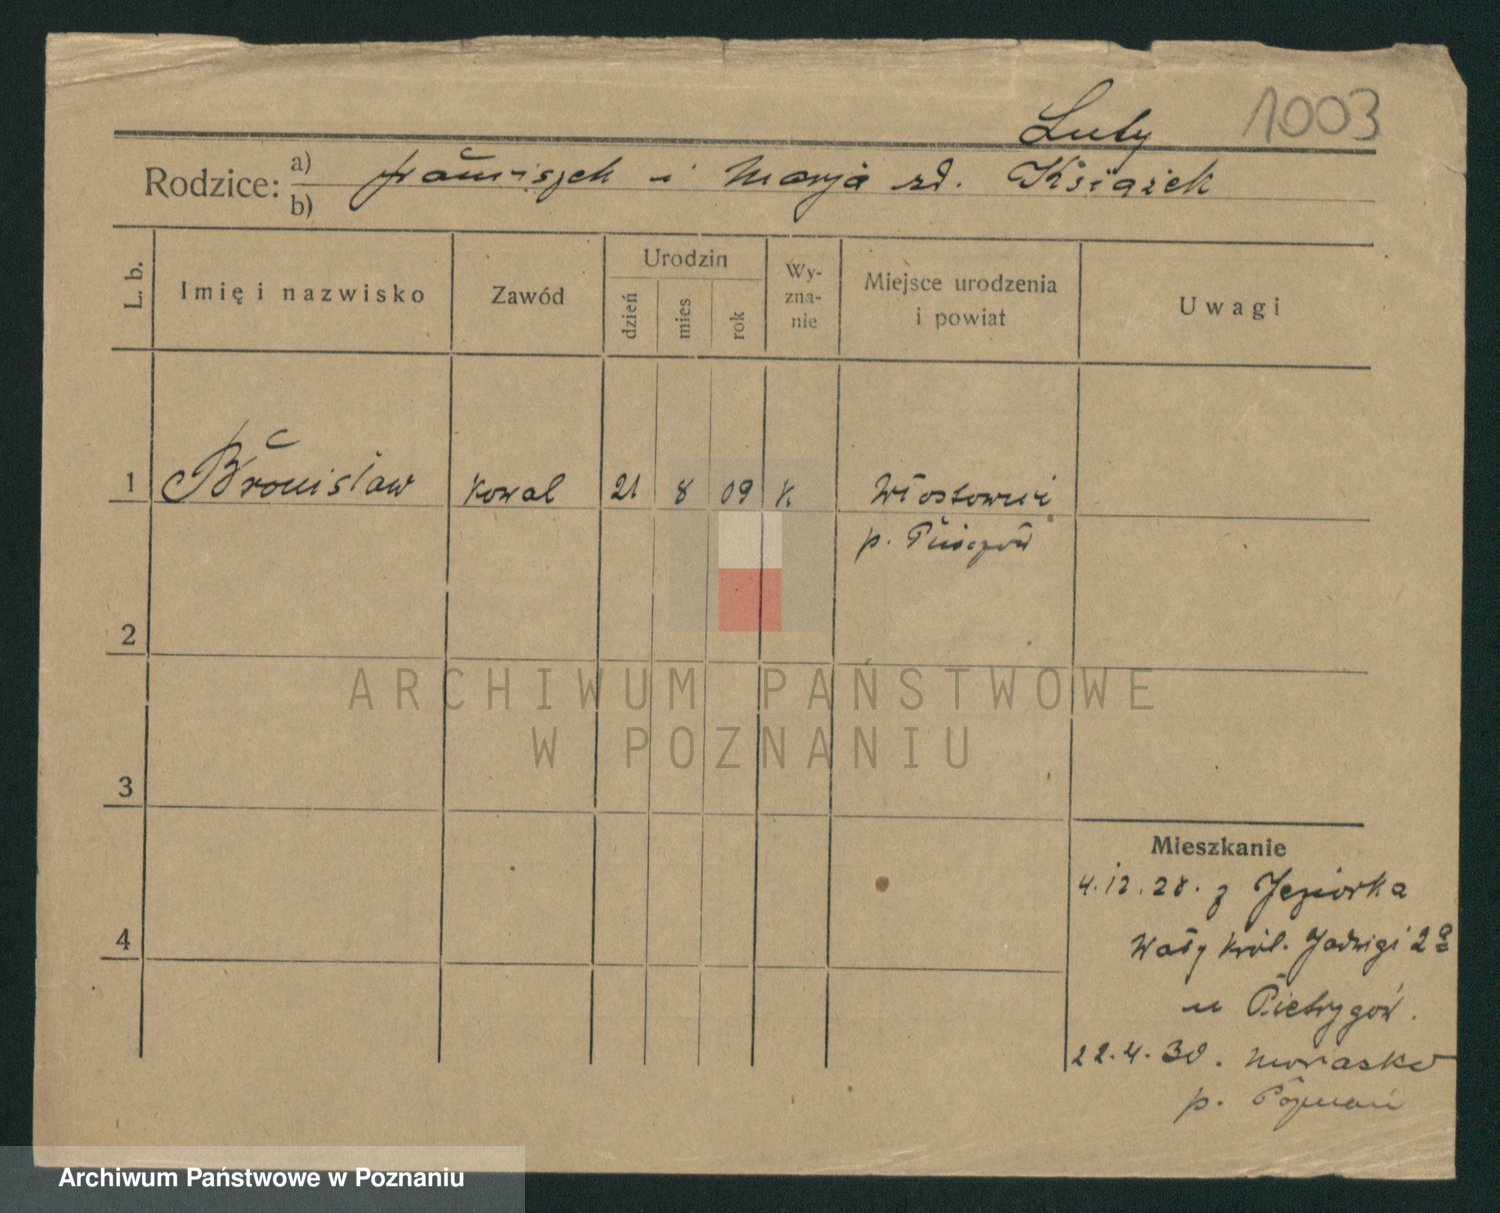 1003
Luty
Rodzice: a) b) Franciszek i Marja zd. Książek
L. b.
Imię i nazwisko
Zawód
Urodzin
dzień
mies
rok
Wy-
zna-
nie
Miejsce urodzenia
i powiat
Uwagi
1 Bronisław kowal 21 8 09 k
p.
2
3
4
Mieszkanie
4.12.28. z Jeziorka
Wały król. Jadwigi 2a
u Pietrygów.
22.4.30. Morasko
p. Poznań
ARCHIWUM PAŃSTWOWE
W POZNANIU
Archiwum Państwowe w Poznaniu